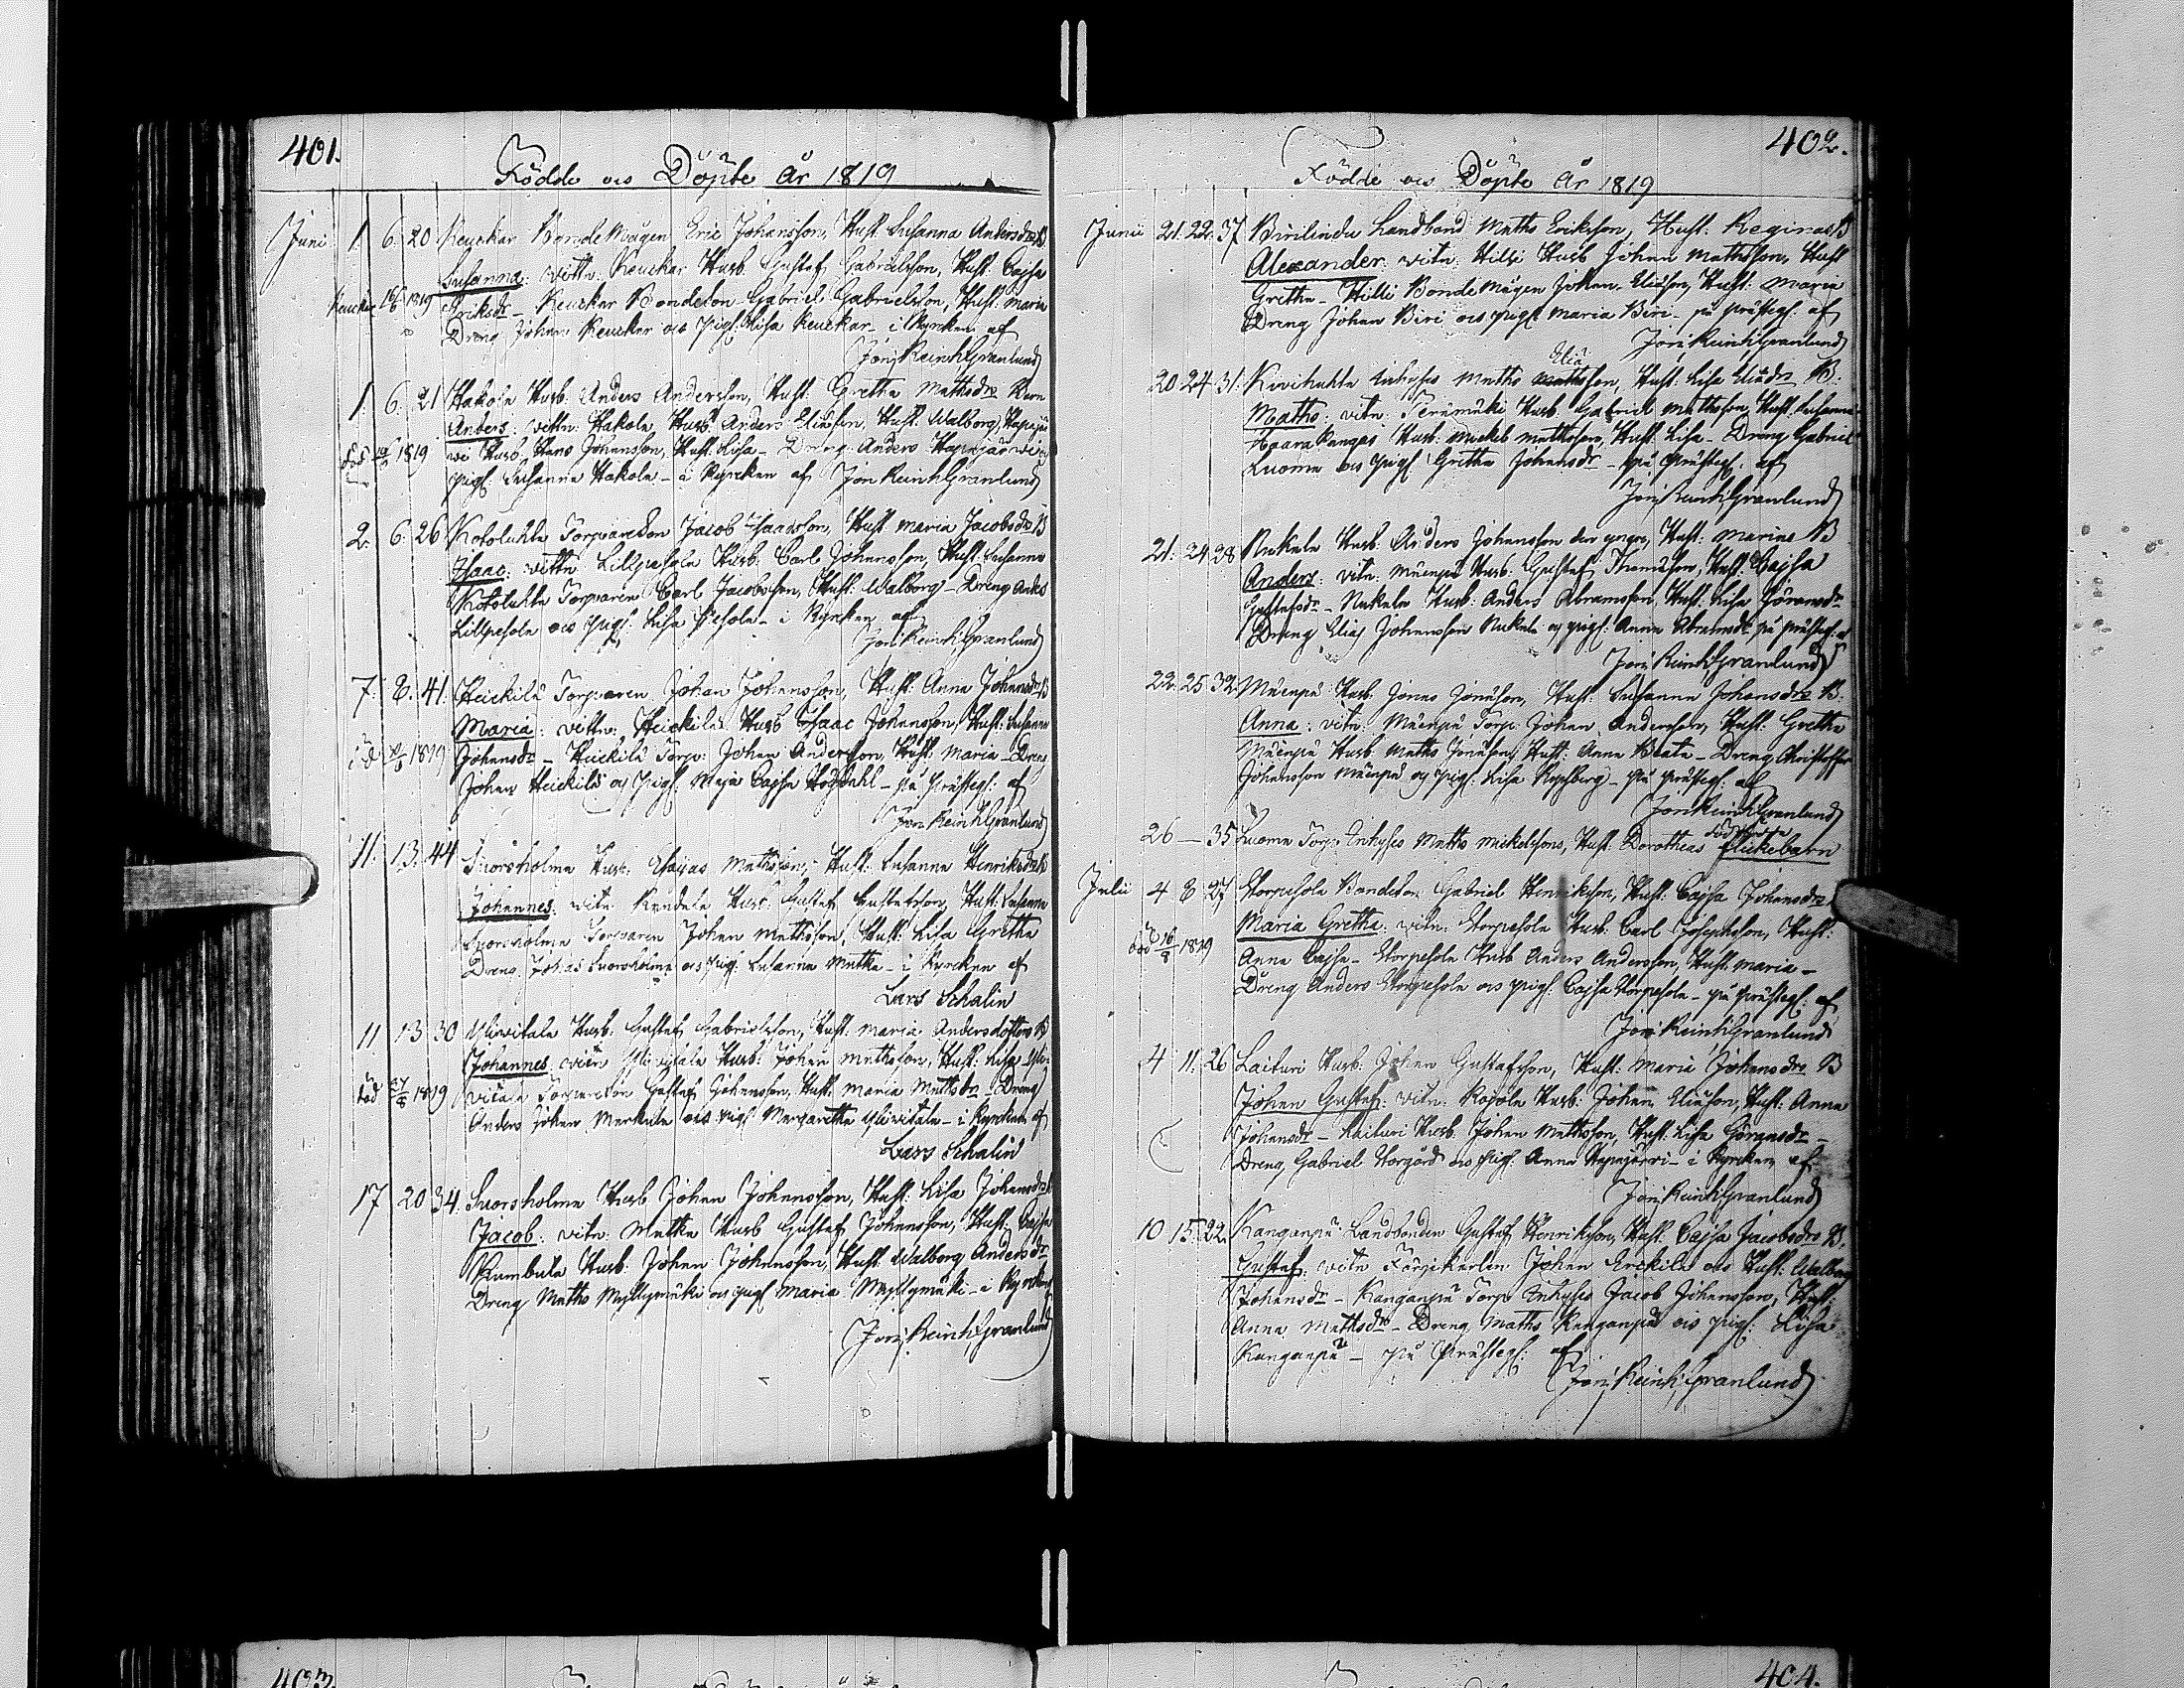 401.
Födde och Döpte År 1819
Juni 1. 6. 20 Keuckar Bonde Mågen Eric Johansson, Hust. Susanna Andersdrs B
Susanna: vittn. Keuckar Husb. Gustaf Gabrielsson, Hust. Cajsa
1819 Eriksdr – Keuckar Bondeson Gabriel Gabrielsson, Hust. Maria
Dreng Johan Keuckar och pig. Lisa Keuckar – i Kyrckan af
Jon Reinh Granlund
1. 6. 21 Hakola Husb. Anders Andersson, Hust. Gretha Mathsdrs Barn
Anders: vittn. Hakola Husb. Anders Eliasson, Hust. Walborg, Hapajär
död 1819 vi Husb. Hans Johansson, Hust. Lisa – Dreng Anders Hapajärvi
pig. Susanna Hakola – i Kyrckan af Jon Reinh Granlund
2. 6. 26 Kotoluhta Torpareson Jacob Isaacsson, Hust. Maria Jacobsdrs B
Isaac: vittn. Lillpesola Husb. Carl Johansson, Hust. Susanna
Kotoluhta Torparen Carl Jacobsson, Hust. Walborg – Dreng Anders
Lillpesola och pig. Lisa Pesola – i Kyrckan af
Jon Reinh Granlund
7. 8. 41. Heickilä Torparen Johan Johansson, Hust. Anna Johansdrs B
Maria: vittn. Heickilä Husb Isaac Johansson, Hust. Susanna
död 1819 Johansdr – Heickilä Torp. Johan Andersson, Hust. Maria – Dreng
Johan Heickilä och pig. Maja Cajsa Högdahl – på Prästeg. af
Jon Reinh Granlund
11. 13. 44 Suorsholma Husb. Esaias Mathsson, Hust. Susanna Henriksdrs B
Johannes: vitn. Kandela Husb. Gustaf Gustafsson, Hust. Susanna
Suorsholma Torparen Johan Mathsson, Hust. Lisa Gretha
Dreng Johas Suorsholma och pig. Susanna Matka – i Kyrckan af
Lars Schalin
11 13 30 Yliwitala Husb. Gustaf Gabrielsson, Hust. Maria Andersdotters B
Johannes: vitn Yliwitala Husb. Johan Mathsson, Hust. Lisa Yli-
död 27/8 1819 witala Torpareson Gustaf Johansson, Hust. Maria Mathsdr – Dreng
Anders Johan Markula och pig. Margaretha Yliwitala – i Kyrckan af
Lars Schalin
17 20 34. Suorsholma Husb Johan Johansson, Hust. Lisa Johansdrs B
Jacob: vitn. Matka Husb Gustaf Johansson, Hust. Cajsa
Rumbula Husb. Johan Johansson, Hust. Walborg Andersdr
Dreng Maths Myllymäki och pig. Maria Myllymäki – i Kyrckan af
Jon Reinh Granlund
402.
Födde och Döpte År 1819
Junii 21. 22. 37 Birilindu Landbond Maths Eriksson, Hust. Reginas B
Alexander: vitn. Hilli Husb Johan Mathsson, Hust
Gretha – Hilli Bonde Mågen Johan Eliasson, Hust. Maria
Dreng Johan Biri och pig. Maria Biri – på Prästeg. af
Jon Reinh Granlund
20. 24. 31. Kivihuhta Inhyses Maths Eliasson, Hust. Lisa Eliadrs B.
Maths: vitn. Terämäki Husb. Gabriel Mathsson, Hust. Susanna
Haarakangas Husb. Mickel Mathsson, Hust. Lisa – Dreng Gabriel
Luoma och pig. Gretha Johansdr – på Prästeg. af
Jon Reinh Granlund
21. 24 28 Nukala Husb. Anders Johansson den yngre, Hust. Marias B
Anders: vitn. Mäenpä Husb. Gustaf Thomasson, Hust. Cajsa
Gustafsdr – Nukala Husb. Anders Abramsson, Hust. Lisa Göransdr
Dreng Elias Johansson Nukala och pig. Anna Abramsdr på Prästeg. af
Jon Reinh Granlund
22. 25. 32. Mäenpä Husb. Jonas Jonasson, Hust. Susanna Johansdrs B.
Anna: vitn. Mäenpä Torp. Johan Andersson, Hust. Gretha
Mäenpä Husb Maths Jonasson, Hust. Anna Beata – Dreng Christoffer
Johansson Mäenpä och pig. Lisa Kyhlberg – på Prästeg. af
Jon Reinh Granlund
26 — 35 Luoma Torp. Inhyses Maths Mickelssons, Hust. Dorotheas dödfödda flickebarn
Julii 4 8. 27 Storpesola Bondeson Gabriel Henriksson, Hust. Cajsa Johansdrs
Maria Gretha: vitn. Storpesola Husb. Carl Josephsson, Hust.
död 16/8 1819 Anna Cajsa – Storpesola Husb Anders Andersson, Hust. Maria –
Dreng Anders Storpesola och pig. Cajsa Storpesola – på Prästeg. af
Jon Reinh Granlund
4 11. 26 Laituri Husb. Johan Gustafsson, Hust. Maria Johansdrs B
Johan Gustaf: vitn. Rojola Husb. Johan Eliasson, Hust. Anna
Johansdr – Laituri Husb. Johan Mathsson, Hust. Lisa Göransdr –
Dreng Gabriel Storgård och pig. Anna Hapajärvi – i Kyrckan af
Jon Reinh Granlund
10 15. 22. Kanganpä Landbonden Gustaf Henriksson, Hust. Cajsa Jacobsdrs B.
Gustaf: vitn Färjkarlen Johan Erckilä och Hust. Walborg
Johansdr – Kanganpä Torp Inhyses Jacob Johansson, Hust.
Anna Mathsdr – Dreng Maths Kanganpä och pig. Lisa
Kanganpä – på Prästeg: af
Jon Reinh Granlund
403
404.